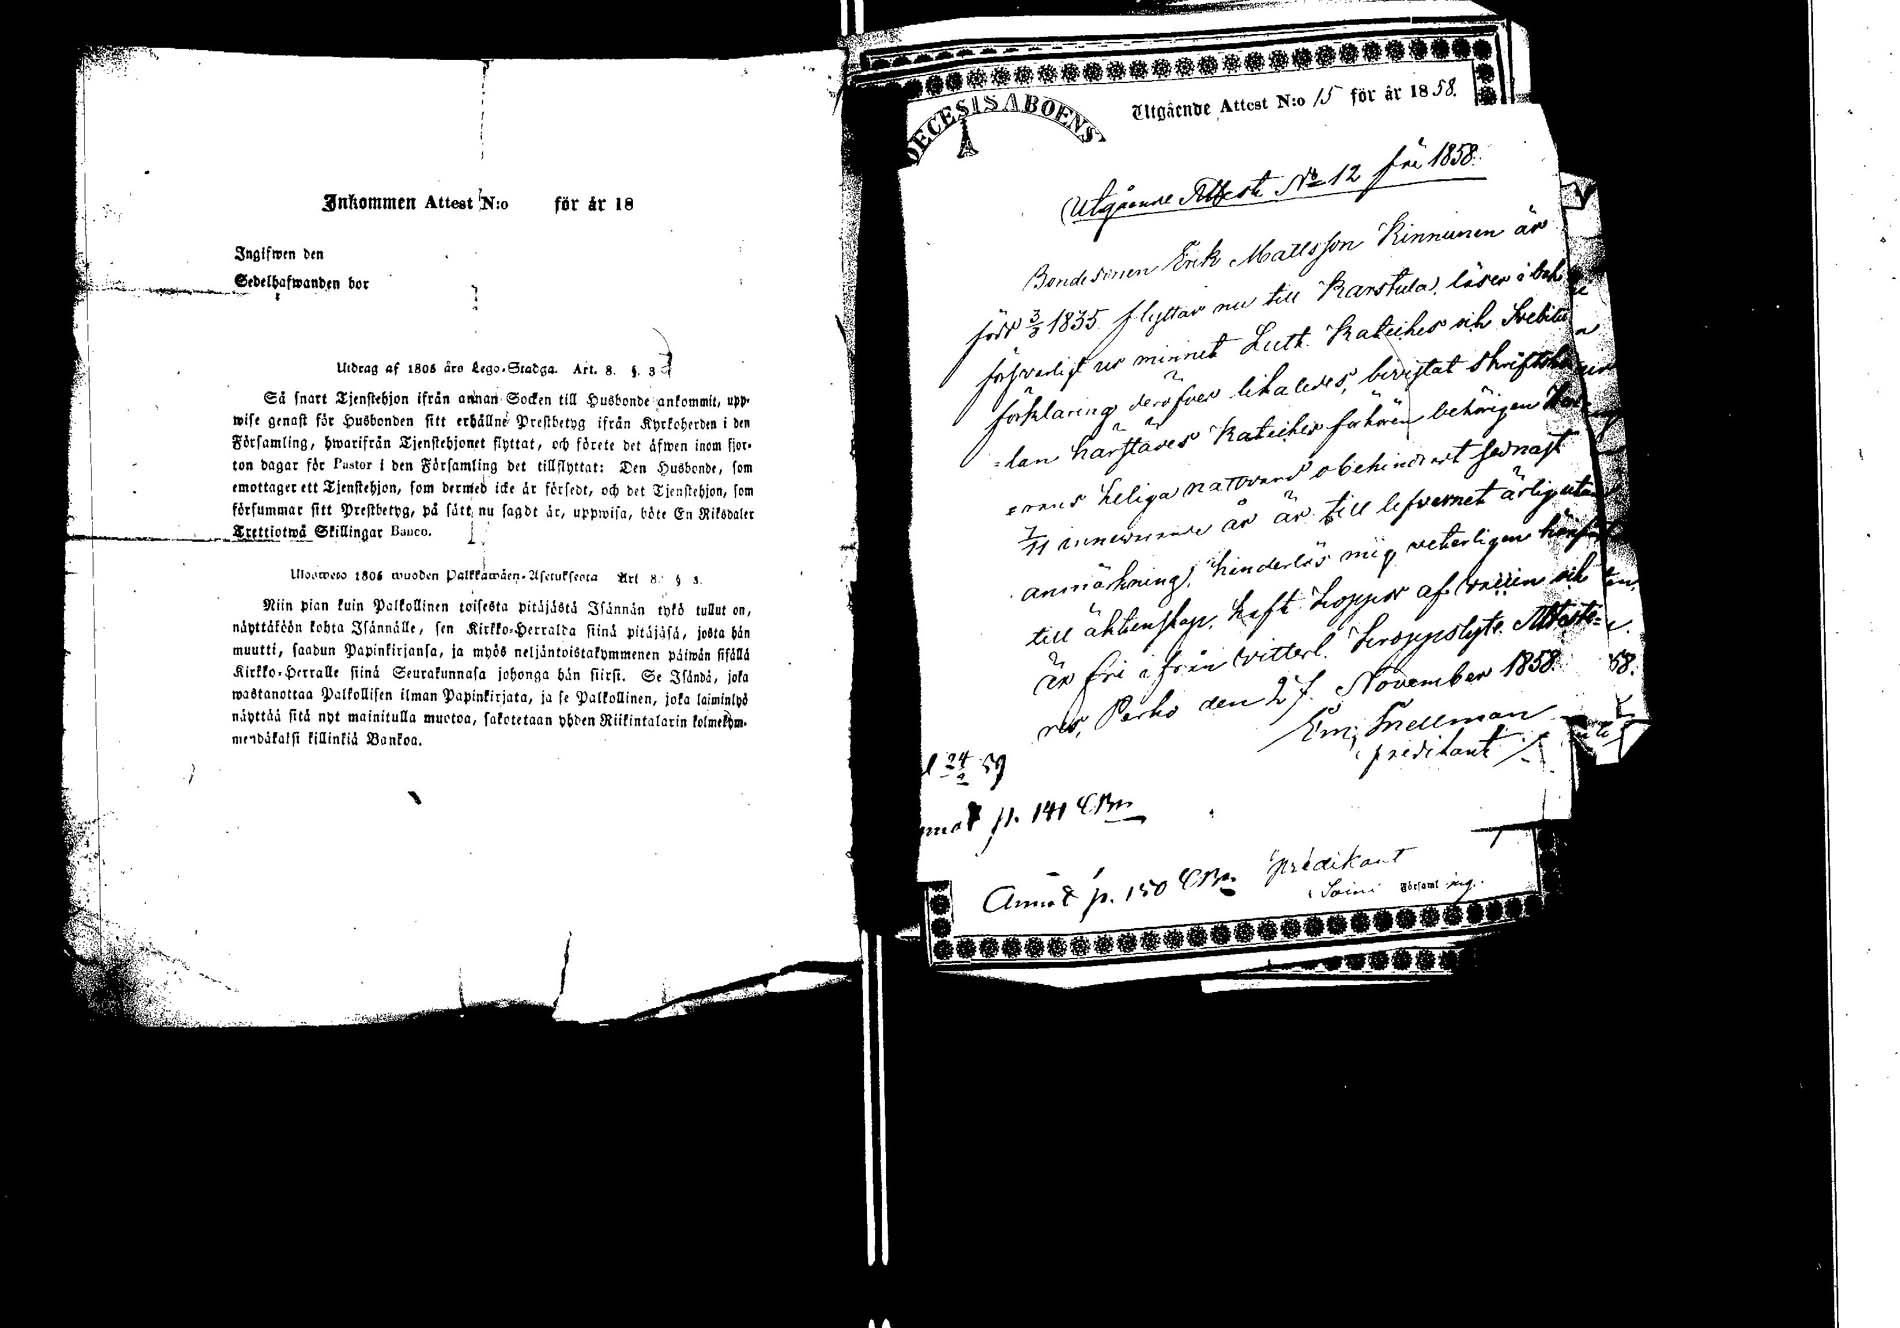 Inkommen Attest N:o för år 18
Ingifwen den
Sedelhafwanden bor
Utdrag af 1805 års Lego-Stadga. Art. 8. §. 3
Så snart Tjenstehjon ifrån annan Socken till Husbonde ankommit, upp-
wise genast för Husbonden sitt erhållne Prestbetyg ifrån Kyrkoherden i den
Församling, hwarifrån Tjenstehjonet flyttat, och förete det äfwen inom fjor-
ton dagar för Pastor i den Församling det tillflyttat: Den Husbonde, som
emottager ett Tjenstehjon, som dermed icke är försedt, och det Tjenstehjon, som
försummar sitt Prestbetyg, på sätt nu sagdt är, uppwisa, böte En Riksdaler
Trettiotwå Skillingar Banco.
Uloswеto 1805 wuoden Palkkawäen-Asetuksesta Art 8. § 3.
Niin pian kuin Palkollinen toisesta pitäjästä Isännän tykö tullut on,
näyttäköön kohta Isännälle, sen Kirkko-Herralda siinä pitäjäsä, josta hän
muutti, saadun Papinkirjansa, ja myös neljäntoistakymmenen päiwän sisällä
Kirkko-Herralle siinä Seurakunnasa johonga hän siirsi. Se Isändä, joka
wastanottaa Palkollisen ilman Papinkirjata, ja se Palkollinen, joka laiminlyö
näyttää sitä nyt mainitulla muotoa, sakotetaan yhden Riikintalarin kolmekym-
mendäkaksi killinkiä Bankoa.
DECESIS ABOENS
Utgående Attest N:o 15 för år 1858.
Utgående Attest No 12 för 1858.
Bondesonen Erik Mattsson Kinnunen är
född 3/3 1835 flyttar nu till Karstula, läser i bok
försvarligt ur minnet Luth. Kateches och Svebilii
förklaring deröfver likaledes, bevistat skriftskol
-lan härstädes Katechesförhören behörigen
heliga nattvard obehindrat sednast
7/11 innevarande år är till lefvernet ärlig utan
anmärkning, hinderlös mig veterligen
till äktenskap, haft koppor af vaccin och
är fri ifrån vitterl. kroppslyte. Atteste-
res, Perho den 27. November 1858.
Em. Snellman
predikant
24/2 59
p. 141 CBm
Annot p. 150 CBm
predikant
Soini Församl ing.
58.